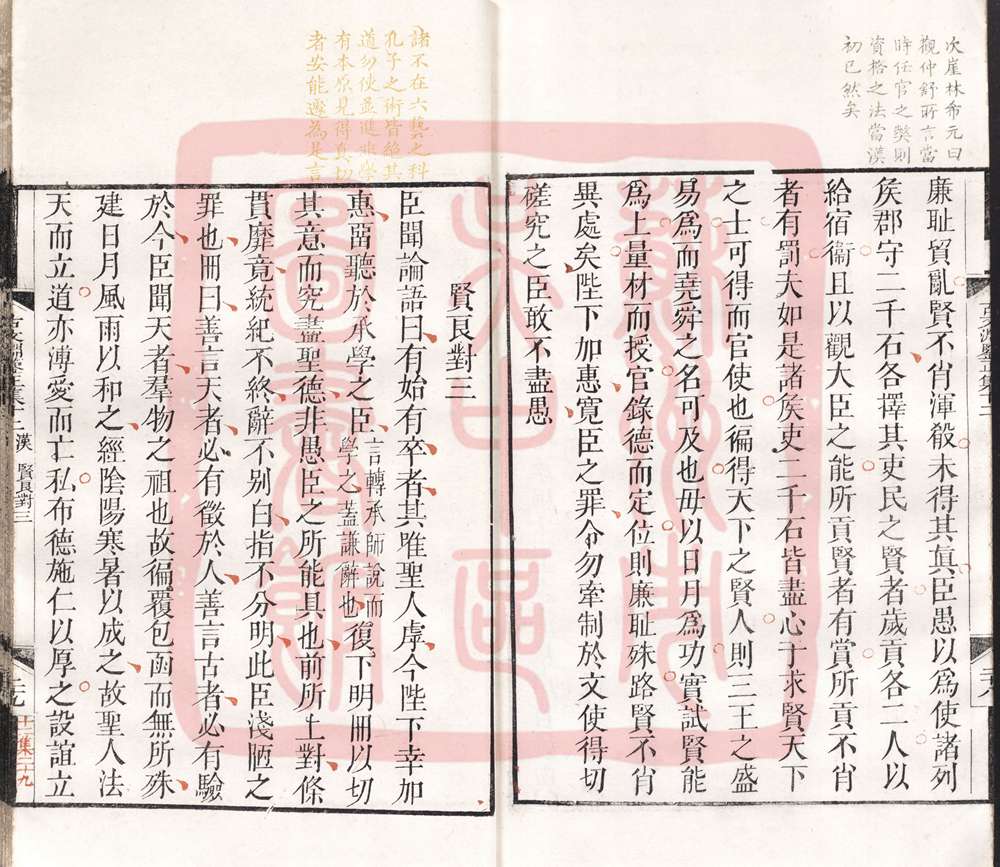 次崖林希元曰
觀仲舒所言當
時任官之弊則
資格之法當漢
初已然矣
廉耻貿亂賢不肖渾殽未得其眞臣愚以爲使諸列
矦郡守二千石各擇其吏民之賢者歲貢各二人以
給宿衞且以觀大臣之能所貢賢者有賞所貢不肖
者有罰夫如是諸矦吏二千石皆盡心于求賢天下
之士可得而官使也徧得天下之賢人則三王之盛
易爲而堯舜之名可及也毋以日月爲功實試賢能
爲上量材而授官錄德而定位則廉耻殊路賢不肖
異處矣陛下加惠寛臣之罪令勿牽制於文使得切
磋究之臣敢不盡愚
諸不在六藝之科
孔子之術皆絶其
道勿使並進非學
有本原見得真切
者安能邃為是言
賢良對三
臣聞論語曰有始有卒者其唯聖人虖今陛下幸加
惠畱聽於承學之臣言轉承師說而學之蓋謙辭也復下明冊以切
其意而究盡聖德非愚臣之所能具也前所上對條
貫靡竟統紀不終辭不别白指不分明此臣淺陋之
罪也冊曰善言天者必有徵於人善言古者必有驗
於今臣聞天者羣物之祖也故徧覆包函而無所殊
建日月風雨以和之經陰陽寒暑以成之故聖人法
天而立道亦溥愛而亡私布德施仁以厚之設誼立
漢 賢良對三
二十九